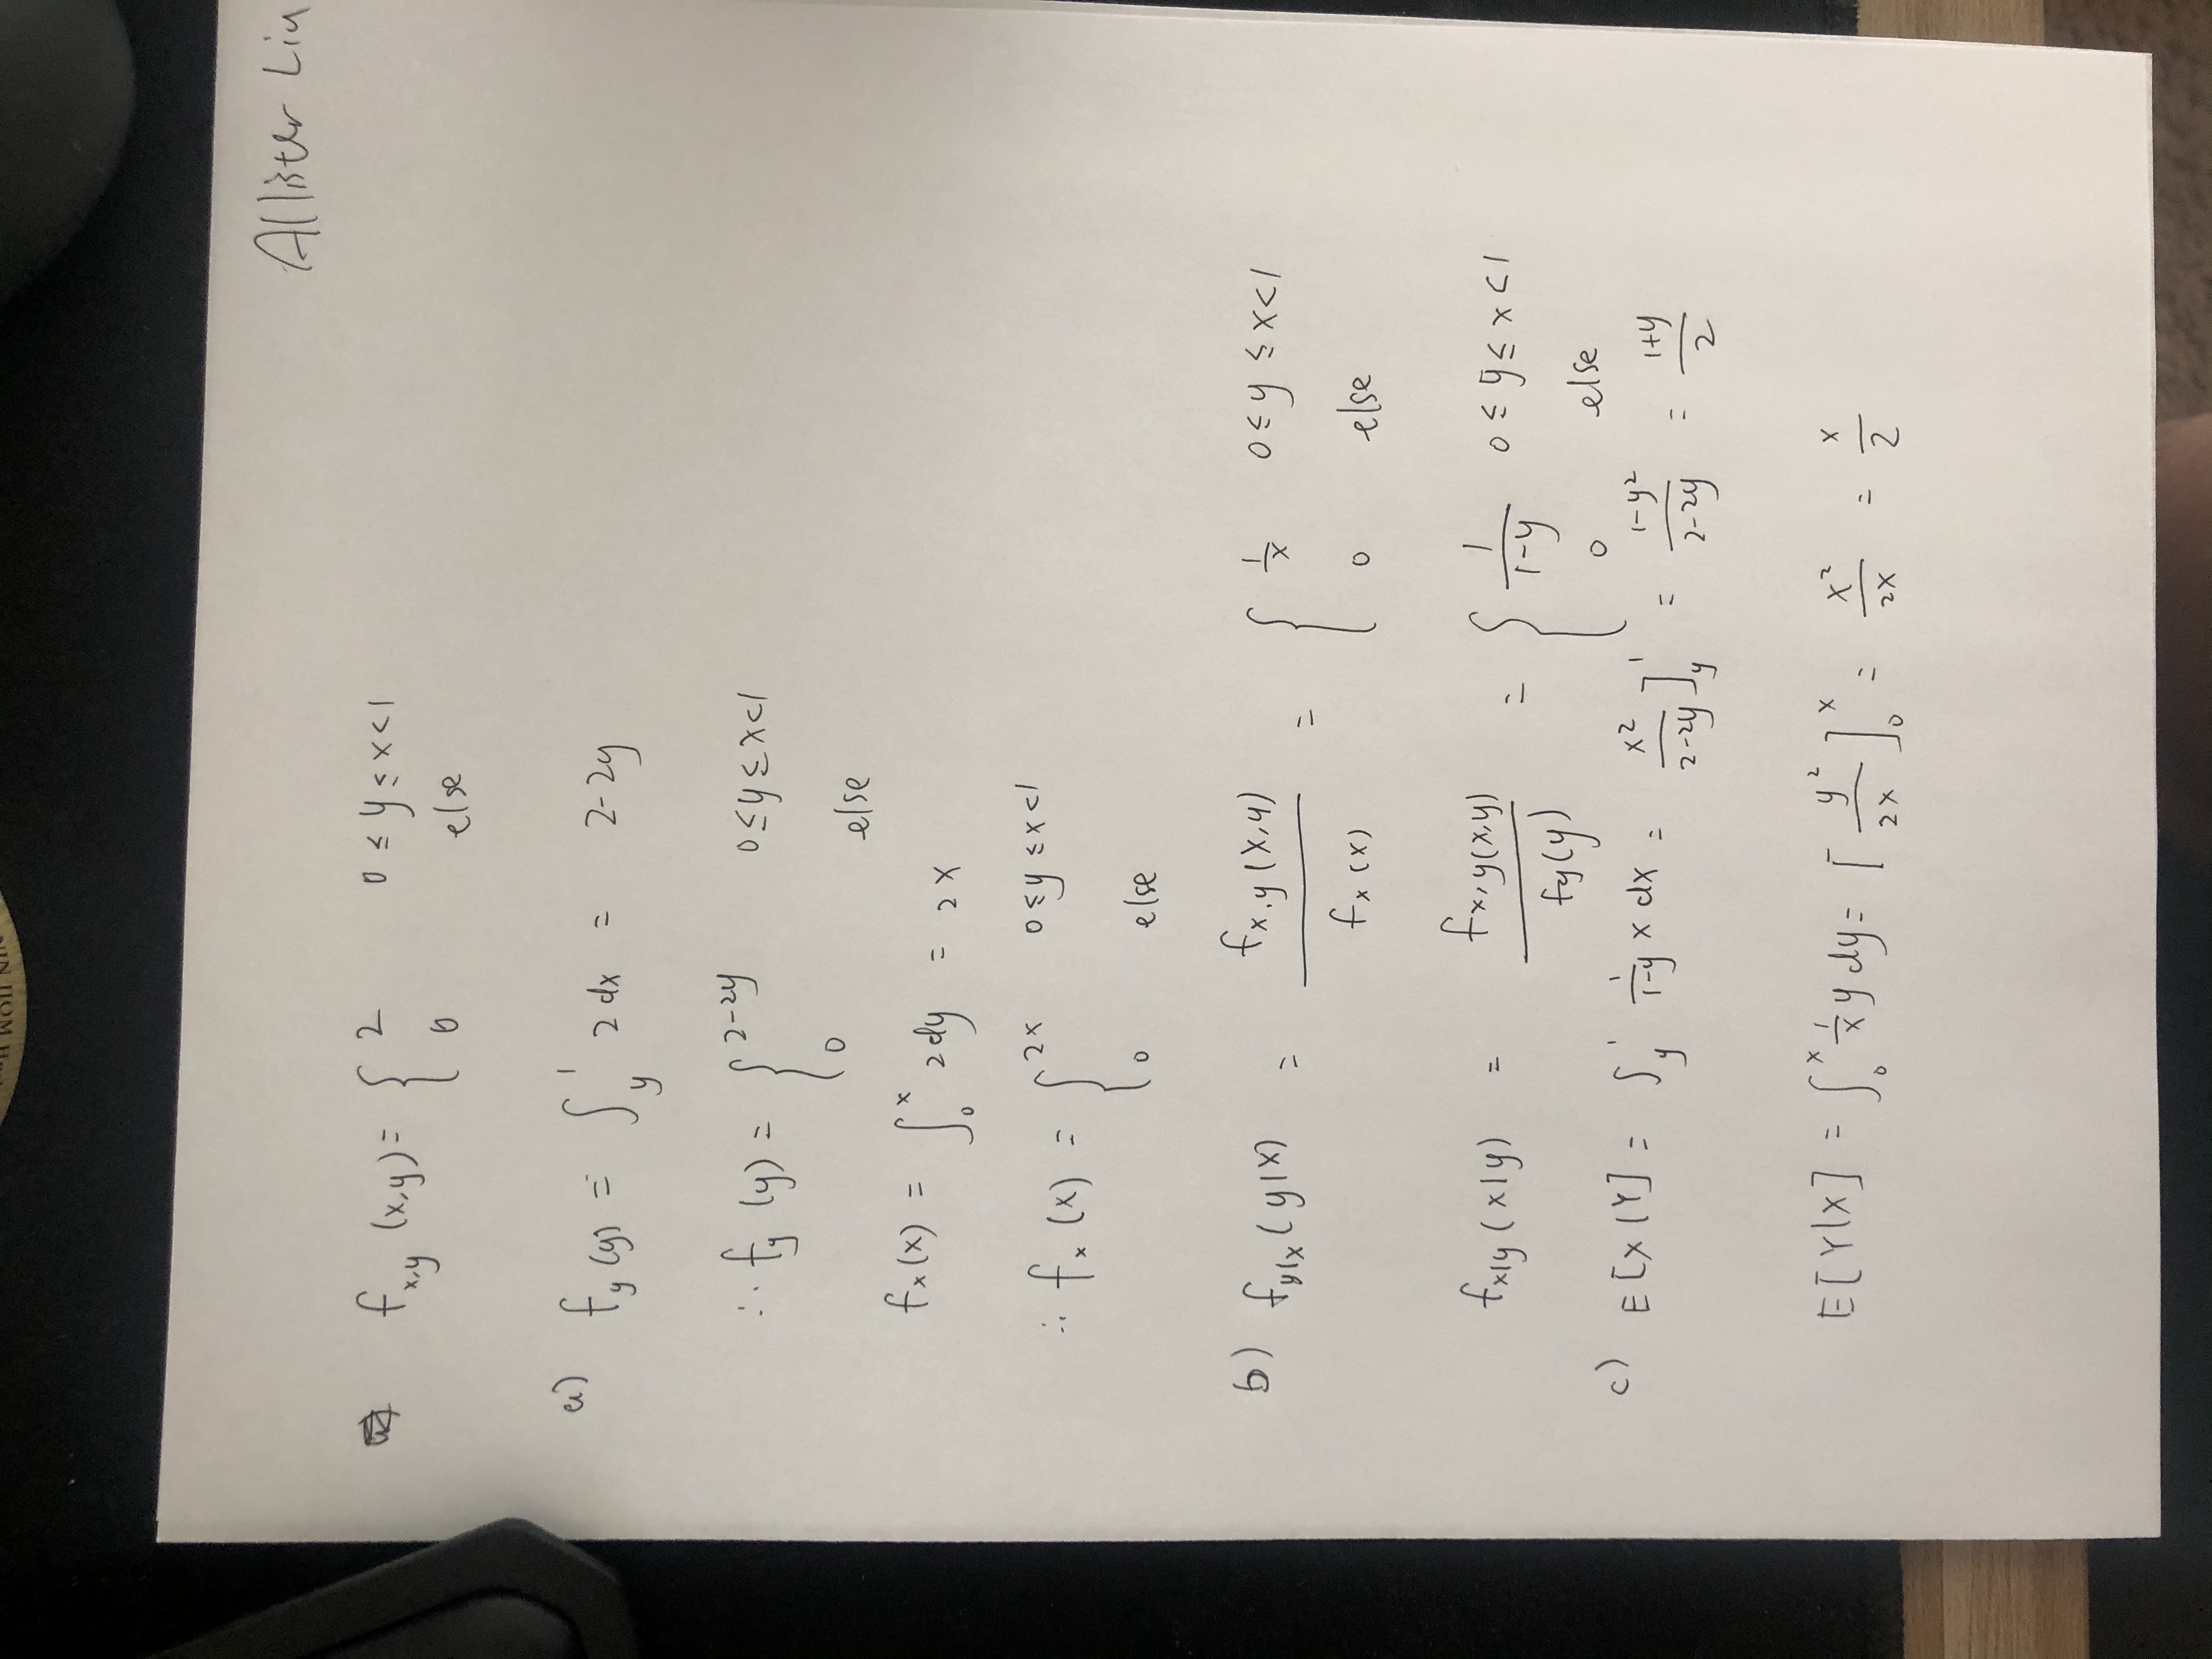 Allister Liu
f_{x,y} (x,y) = { 2 0 ≤ y ≤ x < 1
0 else
a) f_y (y) = ∫_y^1 2 dx = 2-2y
∴ f_y (y) = { 2-2y 0 ≤ y ≤ x < 1
0 else
f_x (x) = ∫_0^x 2 dy = 2x
∴ f_x (x) = { 2x 0 ≤ y ≤ x < 1
0 else
b) f_{y|x} (y|x) = f_{x,y} (x,y) / f_x (x) = { 1/x 0 ≤ y ≤ x < 1
0 else
f_{x|y} (x|y) = f_{x,y} (x,y) / f_y (y) = { 1/(1-y) 0 ≤ y ≤ x < 1
0 else
c) E[X|Y] = ∫_y^1 1/(1-y) x dx = x²/(2-2y) ]_y^1 = (1-y²)/(2-2y) = (1+y)/2
E[Y|X] = ∫_0^x 1/x y dy = [ y²/2x ]_0^x = x²/2x = x/2